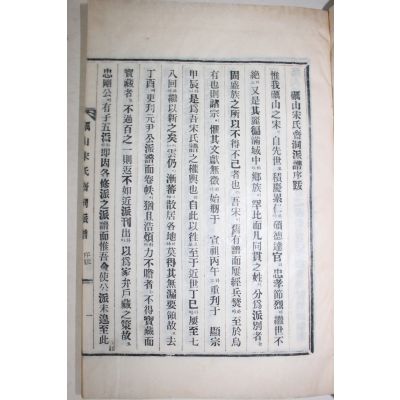 礪山宋氏齊洞派譜序跋
惟我礪山之宋自先世積慶累仁碩德達官忠孝節烈繼世不
絶又是其麗徧滿域中鄕族罕比而凡同貫之姓分爲派別者
固盛族之所以不得不已者也吾宋舊有譜而屢經兵燹至於烏
有也則諸宗慨其文獻無徵始刱于宣祖丙午重刊于顯宗
甲辰是爲吾宋氏譜之權輿也自此以往至于近世丁巳屢至七
八回繼以新之奚雲仍漸蕃散居各地莫得其無漏要領故去
丁酉更刋元尹公派譜而卷帙猶且浩煩力不贍者不得寶藏而
寶藏者不過百之一則返不如近派刊出以爲家幷戶藏之策故
忠剛公有子五而卽因各修派之派譜而惟吾使公派未遑至此
礪山宋氏齊洞派譜 序跋 一